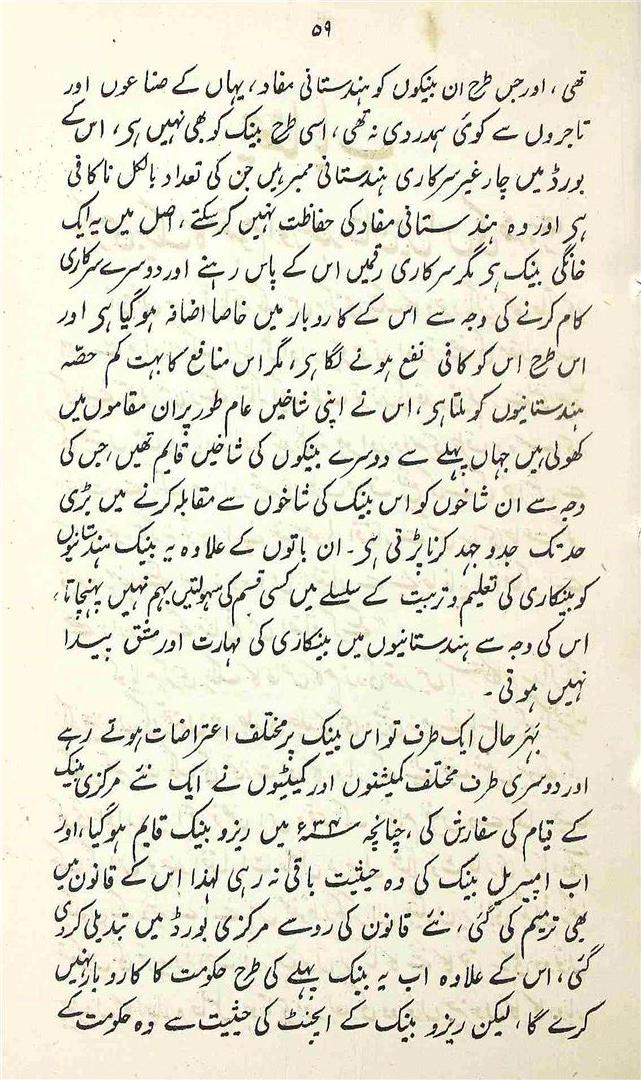 ۵۹
تھی، اور جس طرح ان بینکوں کو ہندستانی مفاد، یہاں کے صناعوں اور
تاجروں سے کوئی ہمدردی نہ تھی، اسی طرح بینک کو بھی نہیں ہی، اس کے
بورڈ میں چار غیر سرکاری ہندستانی ممبر ہیں جن کی تعداد بالکل ناکافی
ہی اور وہ ہندستانی مفاد کی حفاظت نہیں کرسکتے، اصل میں یہ ایک
خانگی بینک ہی مگر سرکاری رقمیں اس کے پاس رہنے اور دوسرے سرکاری
کام کرنے کی وجہ سے اس کے کاروبار میں خاصا اضافہ ہوگیا ہی اور
اس طرح اس کو کافی نفع ہونے لگا ہی، مگر اس منافع کا بہت کم حصّہ
ہندستانیوں کو ملتا ہی، اس نے اپنی شاخیں عام طور پر ان مقاموں میں
کھولی ہیں جہاں پہلے سے دوسرے بینکوں کی شاخیں قایم تھیں، جس کی
وجہ سے ان شاخوں کو اس بینک کی شاخوں سے مقابلہ کرنے میں بڑی
حد تک جدو جہد کرنا پڑتی ہی۔ ان باتوں کے علاوہ یہ بینک ہندستانیوں
کو بینکاری کی تعلیم و تربیت کے سلسلے میں کسی قسم کی سہولتیں بہم نہیں پہنچاتا،
اس کی وجہ سے ہندستانیوں میں بینکاری کی مہارت اور مشق پیدا
نہیں ہوتی۔
بہر حال ایک طرف تو اس بینک پر مختلف اعتراضات ہوتے رہے
اور دوسری طرف مختلف کمیشنوں اور کمیٹیوں نے ایک نئے مرکزی بینک
کے قیام کی سفارش کی، چنانچہ ۳۴ء میں ریزو بینک قایم ہوگیا، اور
اب امپیریل بینک کی وہ حیثیت باقی نہ رہی لہٰذا اس کے قانون میں
بھی ترمیم کی گئی، نئے قانون کی رو سے مرکزی بورڈ میں تبدیلی کردی
گئی، اس کے علاوہ اب یہ بینک پہلے کی طرح حکومت کا کاروبار نہیں
کرے گا، لیکن ریزو بینک کے ایجنٹ کی حیثیت سے وہ حکومت کے